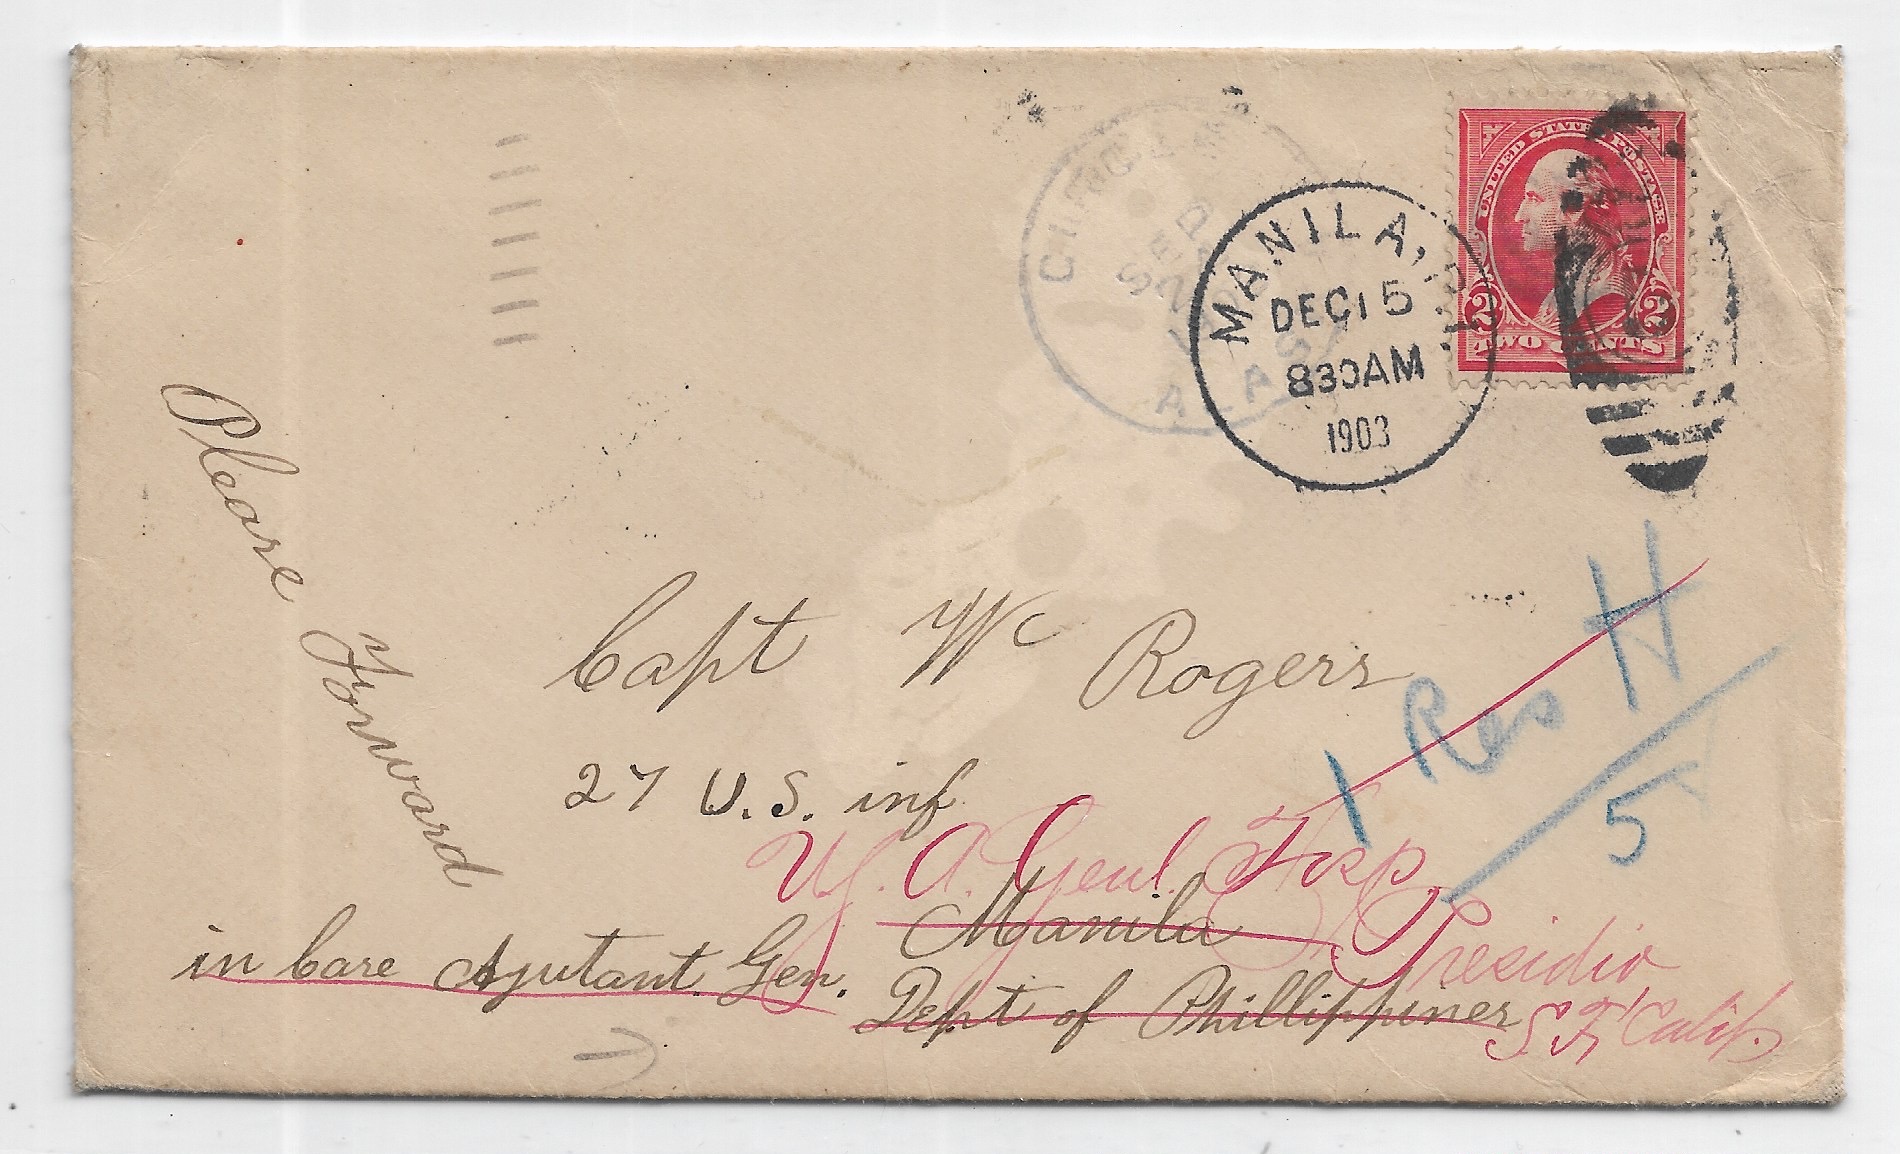 CIRCLE
SEP
2
ALAS
MANILA, P.I.
DEC 15
830AM
1903
UNITED STATES POSTAGE
2 2
TWO CENTS
Please Forward
Capt Wm Rogers
27 U.S. inf
1 Res H
5
U.S. A. Genl. Hosp.
Manila
Presidio
in Care Ajutant Gen.
Dept of Phillippines
S.F. Calif.